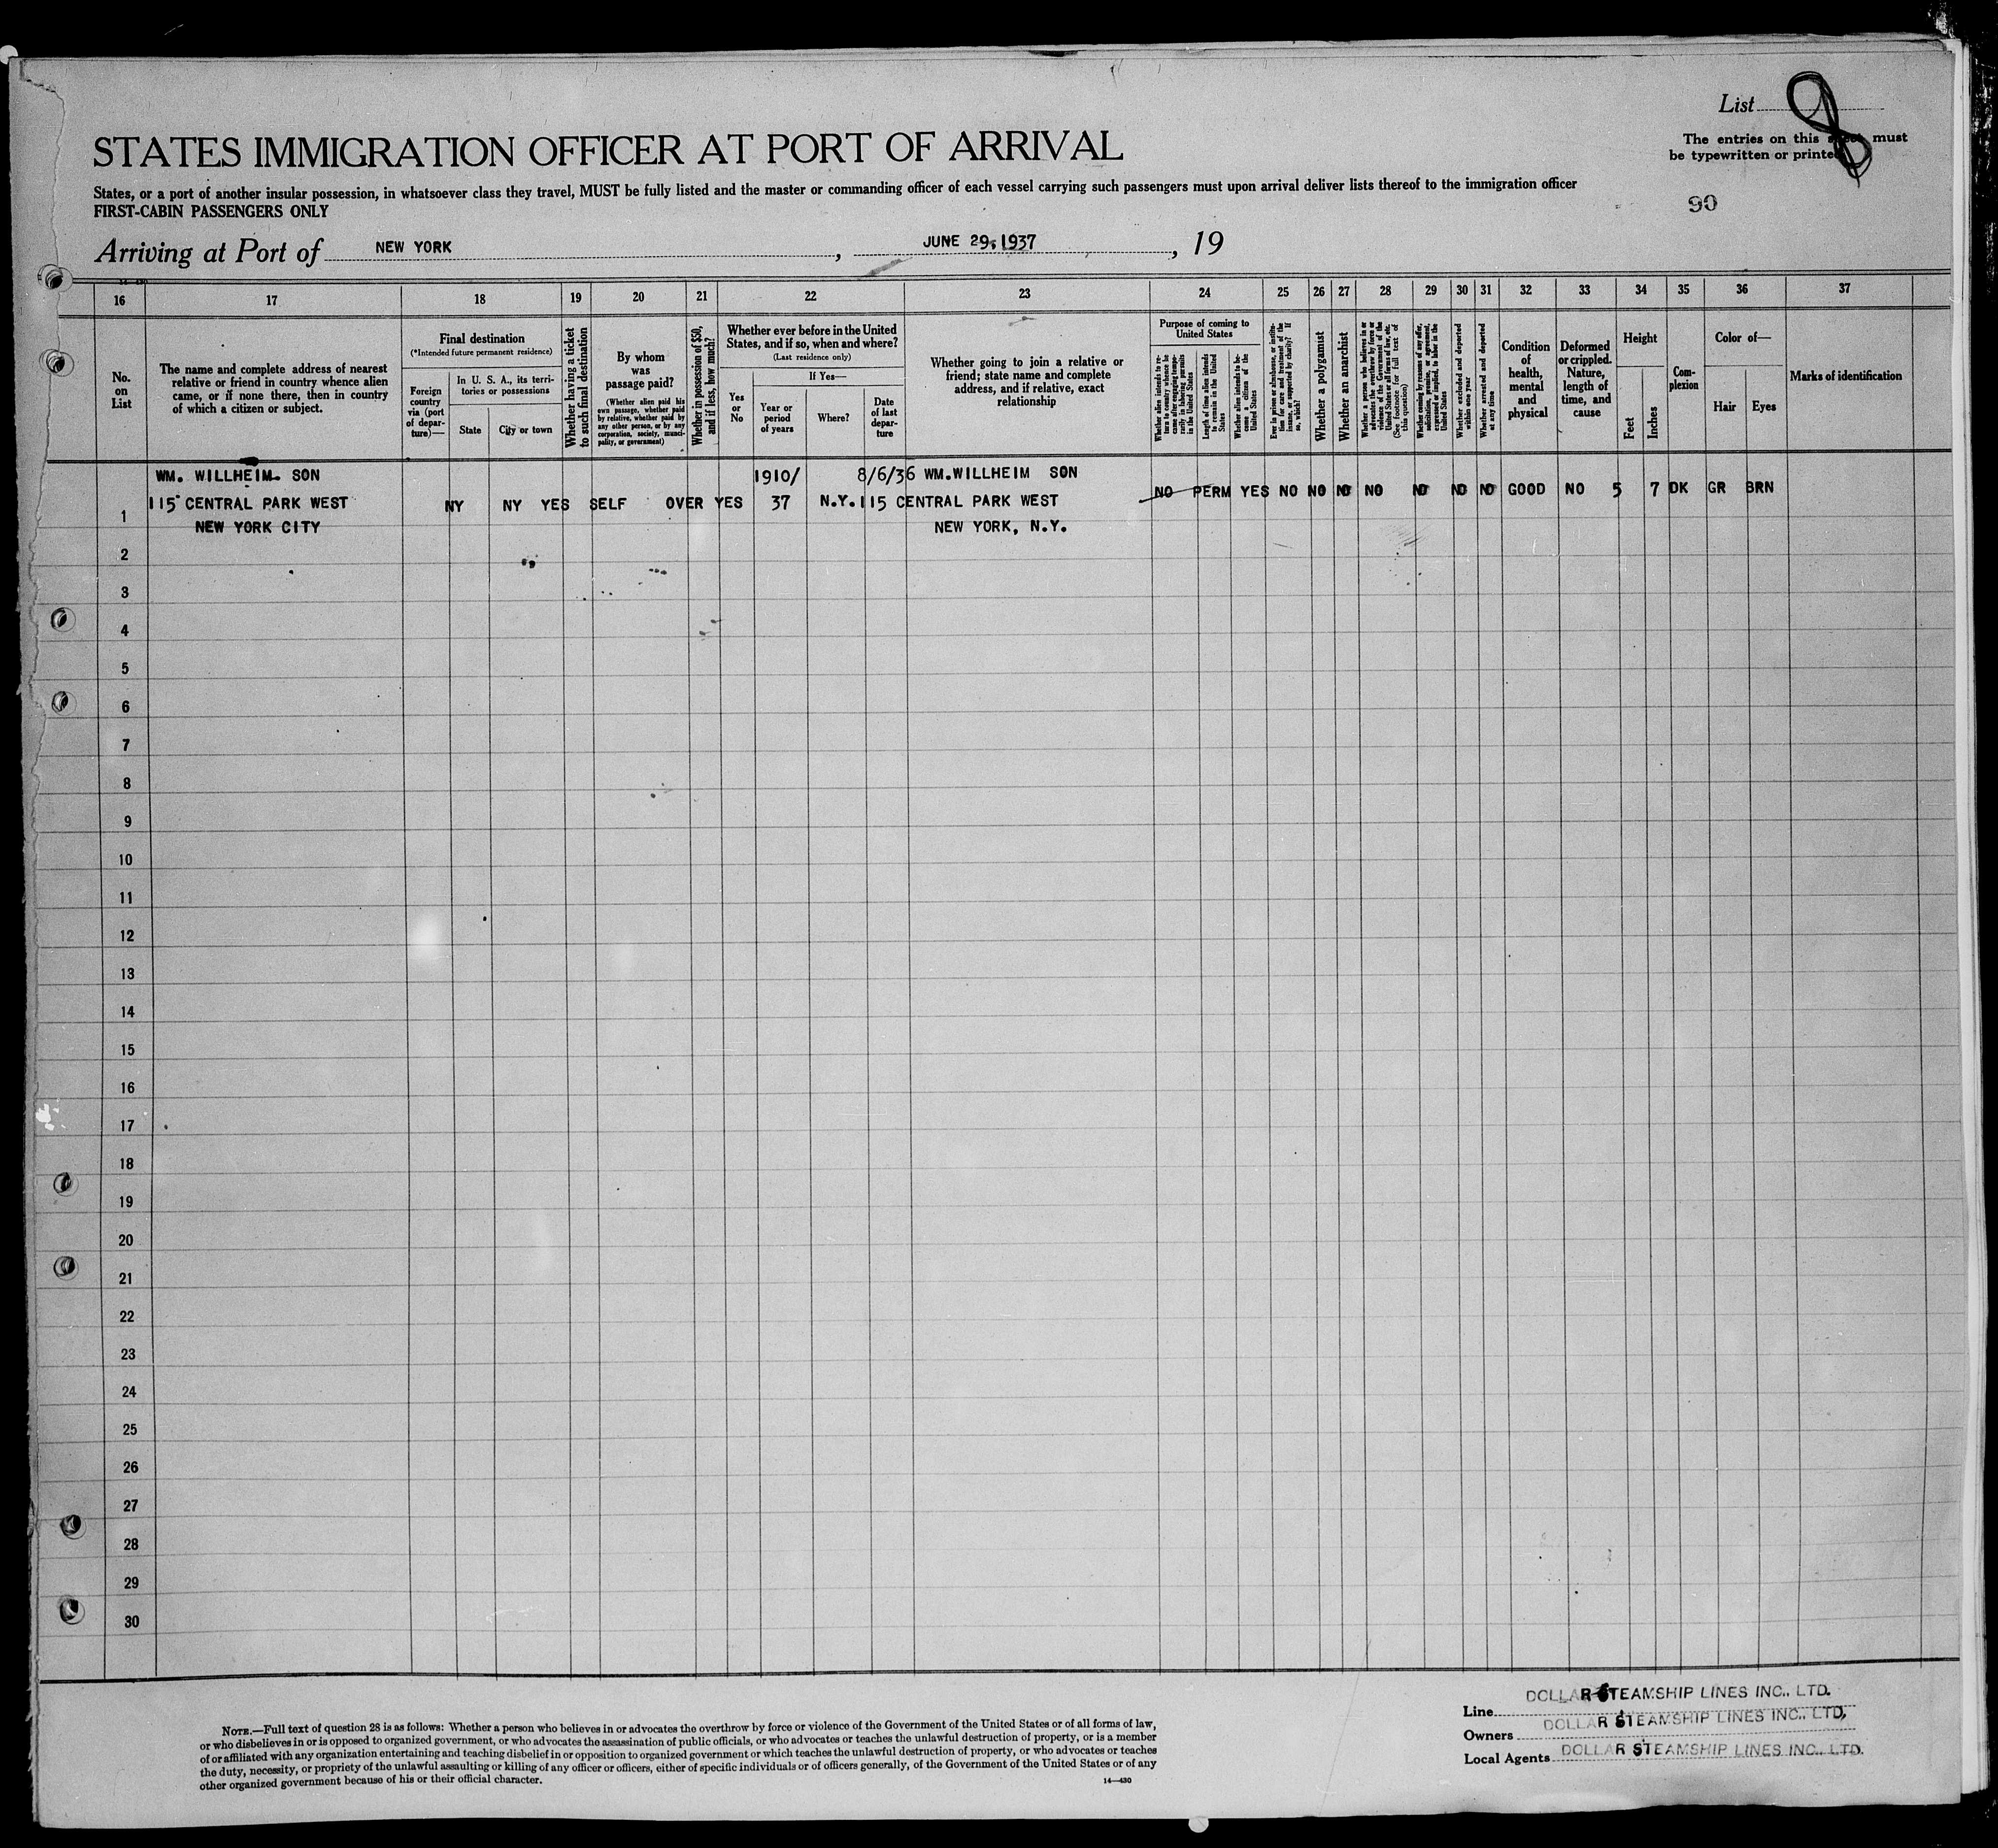 List 8
STATES IMMIGRATION OFFICER AT PORT OF ARRIVAL
The entries on this sheet must
be typewritten or printed
States, or a port of another insular possession, in whatsoever class they travel, MUST be fully listed and the master or commanding officer of each vessel carrying such passengers must upon arrival deliver lists thereof to the immigration officer
FIRST-CABIN PASSENGERS ONLY
90
Arriving at Port of NEW YORK, JUNE 29, 1937, 19
16 17 18 19 20 21 22 23 24 25 26 27 28 29 30 31 32 33 34 35 36 37
No. on List
The name and complete address of nearest
relative or friend in country whence alien
came, or if none there, then in country
of which a citizen or subject.
Final destination
(*Intended future permanent residence)
Foreign
country
via (port
of depar-
ture)—
In U. S. A., its terri-
tories or possessions
State
City or town
Whether having a ticket
to such final destination
By whom
was
passage paid?
(Whether alien paid his
own passage, whether paid
by relative, whether paid by
any other person, or by any
corporation, society, munici-
pality, or government)
Whether in possession of $50,
and if less, how much?
Whether ever before in the United
States, and if so, when and where?
(Last residence only)
Yes
or
No
If Yes—
Year or
period
of years
Where?
Date
of last
depar-
ture
Whether going to join a relative or
friend; state name and complete
address, and if relative, exact
relationship
Purpose of coming to
United States
Whether alien intends to re-
turn to country whence he
came after engaging tempo-
rarily in laboring pursuits
in the United States
Length of time alien intends
to remain in the United
States
Whether alien intends to be-
come a citizen of the
United States
Ever in prison or almshouse, or institu-
tion for care and treatment of the
insane, or supported by charity? If
so, which?
Whether a polygamist
Whether an anarchist
Whether a person who believes in or
advocates the overthrow by force or
violence of the Government of the
United States or all forms of law, etc.
(See footnote for full text of
this question)
Whether coming by reason of any offer,
solicitation, promise, or agreement,
expressed or implied, to labor in the
United States
Whether excluded and deported
within one year
Whether arrested and deported
at any time
Condition
of
health,
mental
and
physical
Deformed
or crippled.
Nature,
length of
time, and
cause
Height
Feet
Inches
Com-
plexion
Color of—
Hair
Eyes
Marks of identification
WM. WILLHEIM. SON 1910/ 8/6/36 WM.WILLHEIM SON
1 115 CENTRAL PARK WEST NY NY YES SELF OVER YES 37 N.Y. 115 CENTRAL PARK WEST NO PERM YES NO NO NO NO NO NO NO GOOD NO 5 7 DK GR BRN
NEW YORK CITY NEW YORK, N.Y.
2
3
4
5
6
7
8
9
10
11
12
13
14
15
16
17
18
19
20
21
22
23
24
25
26
27
28
29
30
NOTE.—Full text of question 28 is as follows: Whether a person who believes in or advocates the overthrow by force or violence of the Government of the United States or of all forms of law,
or who disbelieves in or is opposed to organized government, or who advocates the assassination of public officials, or who advocates or teaches the unlawful destruction of property, or is a member
of or affiliated with any organization entertaining and teaching disbelief in or opposition to organized government or which teaches the unlawful destruction of property, or who advocates or teaches
the duty, necessity, or propriety of the unlawful assaulting or killing of any officer or officers, either of specific individuals or of officers generally, of the Government of the United States or of any
other organized government because of his or their official character.
14—430
Line DOLLAR STEAMSHIP LINES INC., LTD.
Owners DOLLAR STEAMSHIP LINES INC., LTD.
Local Agents DOLLAR STEAMSHIP LINES INC., LTD.